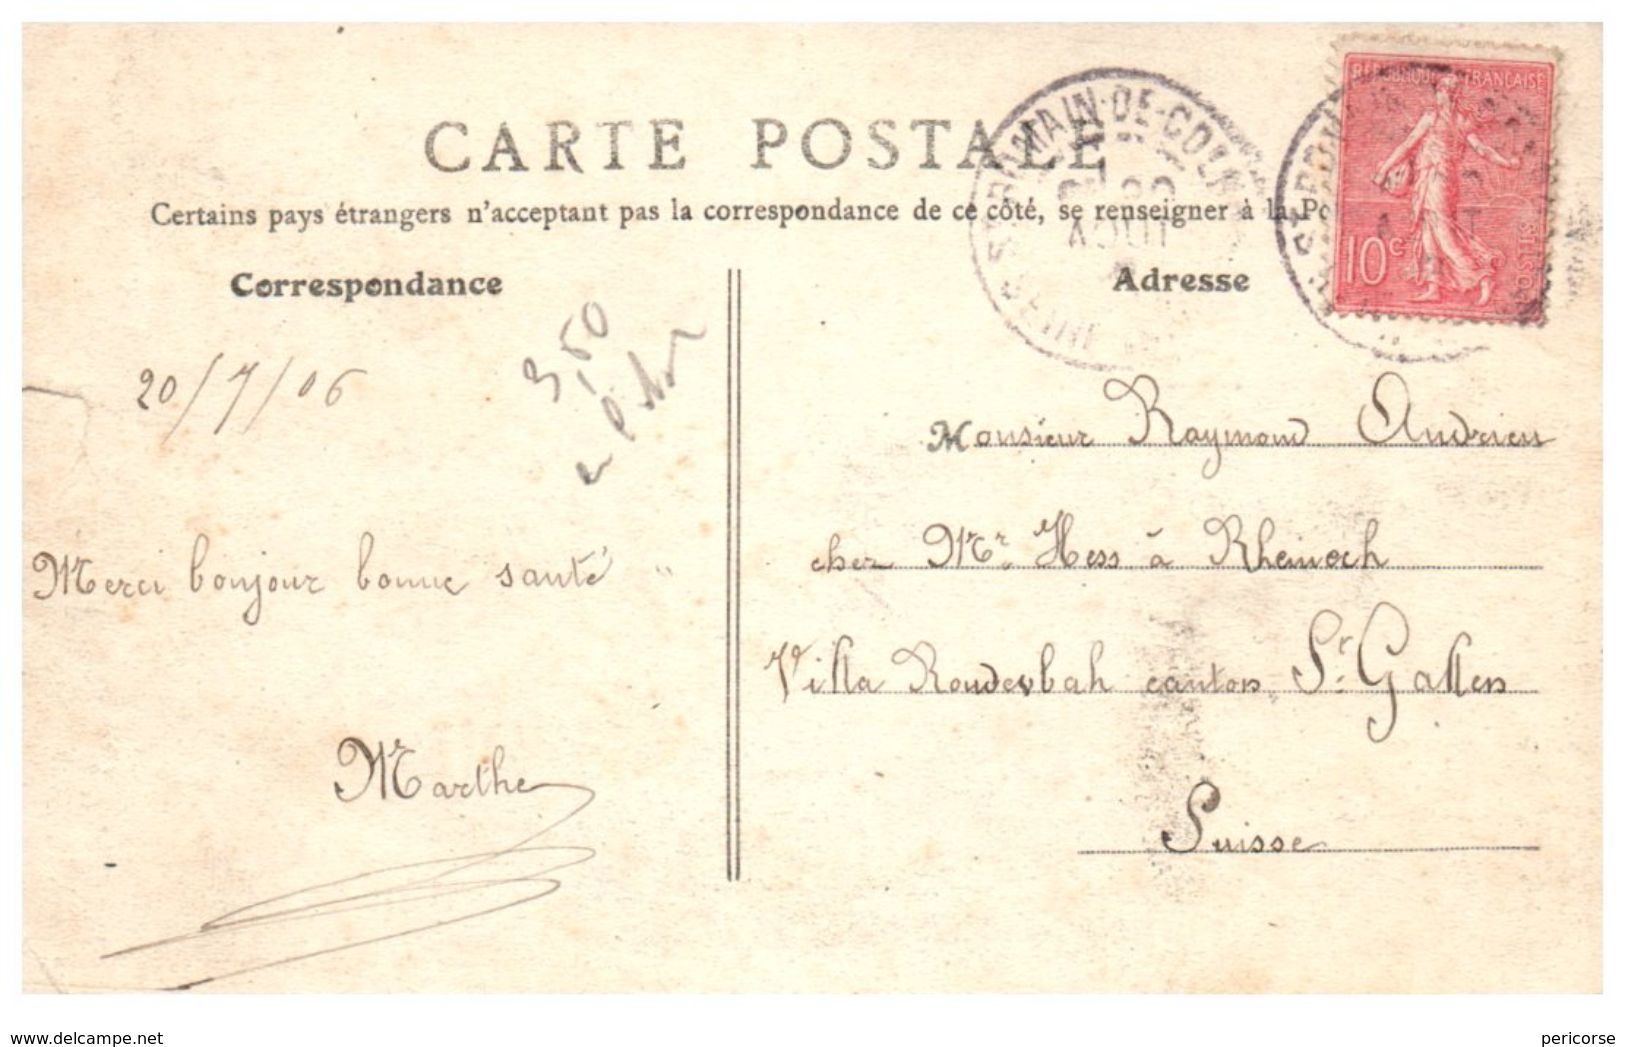 CARTE POSTALE
Certains pays étrangers n'acceptant pas la correspondance de ce côté, se renseigner à la Po
Correspondance
Adresse
RÉPUBLIQUE FRANÇAISE
10c
POSTES
ST ROMAIN-DE-COL
AOUT
SEINE
20/7/06
3,50
Merci bonjour bonne santé "
Marthe
Monsieur Raymond Andrieu
chez Mr. Hess à Rheineck
Villa Rouderbah canton St. Gallen
Suisse
www.delcampe.net
pericorse